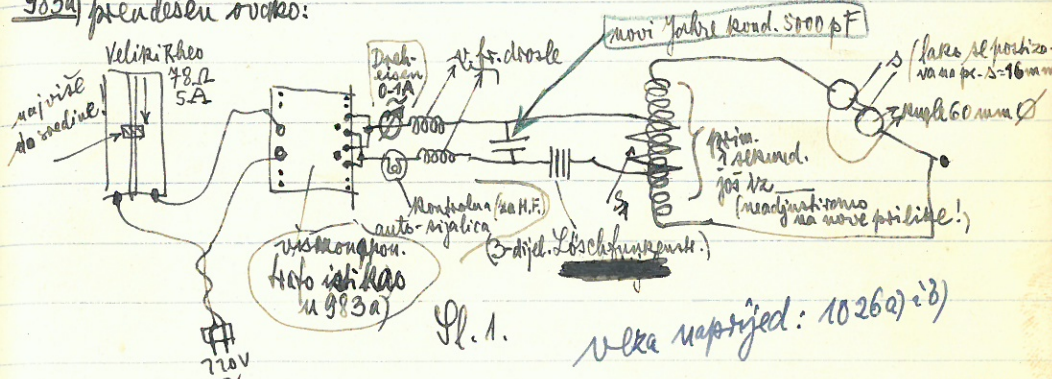 983a) preudešen ovako:
Veliki Rheo
78 Ω
5A
najviše
do sredine!
Dreh-
eisen
0-1A
v. fr. drosle
novi Jahre kond. 5000 pF
s (lako se postizo-
va na pr. s=16 mm
kugle 60 mm Ø
prim.
i sekund.
još iz
(neadjustirano
na nove prilike!)
Kontrolna (za H.F.)
auto-sijalica
(3-dijel. Löschfunkenstr.)
visokonapon.
trafo isti kao
u 983a)
Sl. 1.
veza naprijed: 1026a) i b)
220V